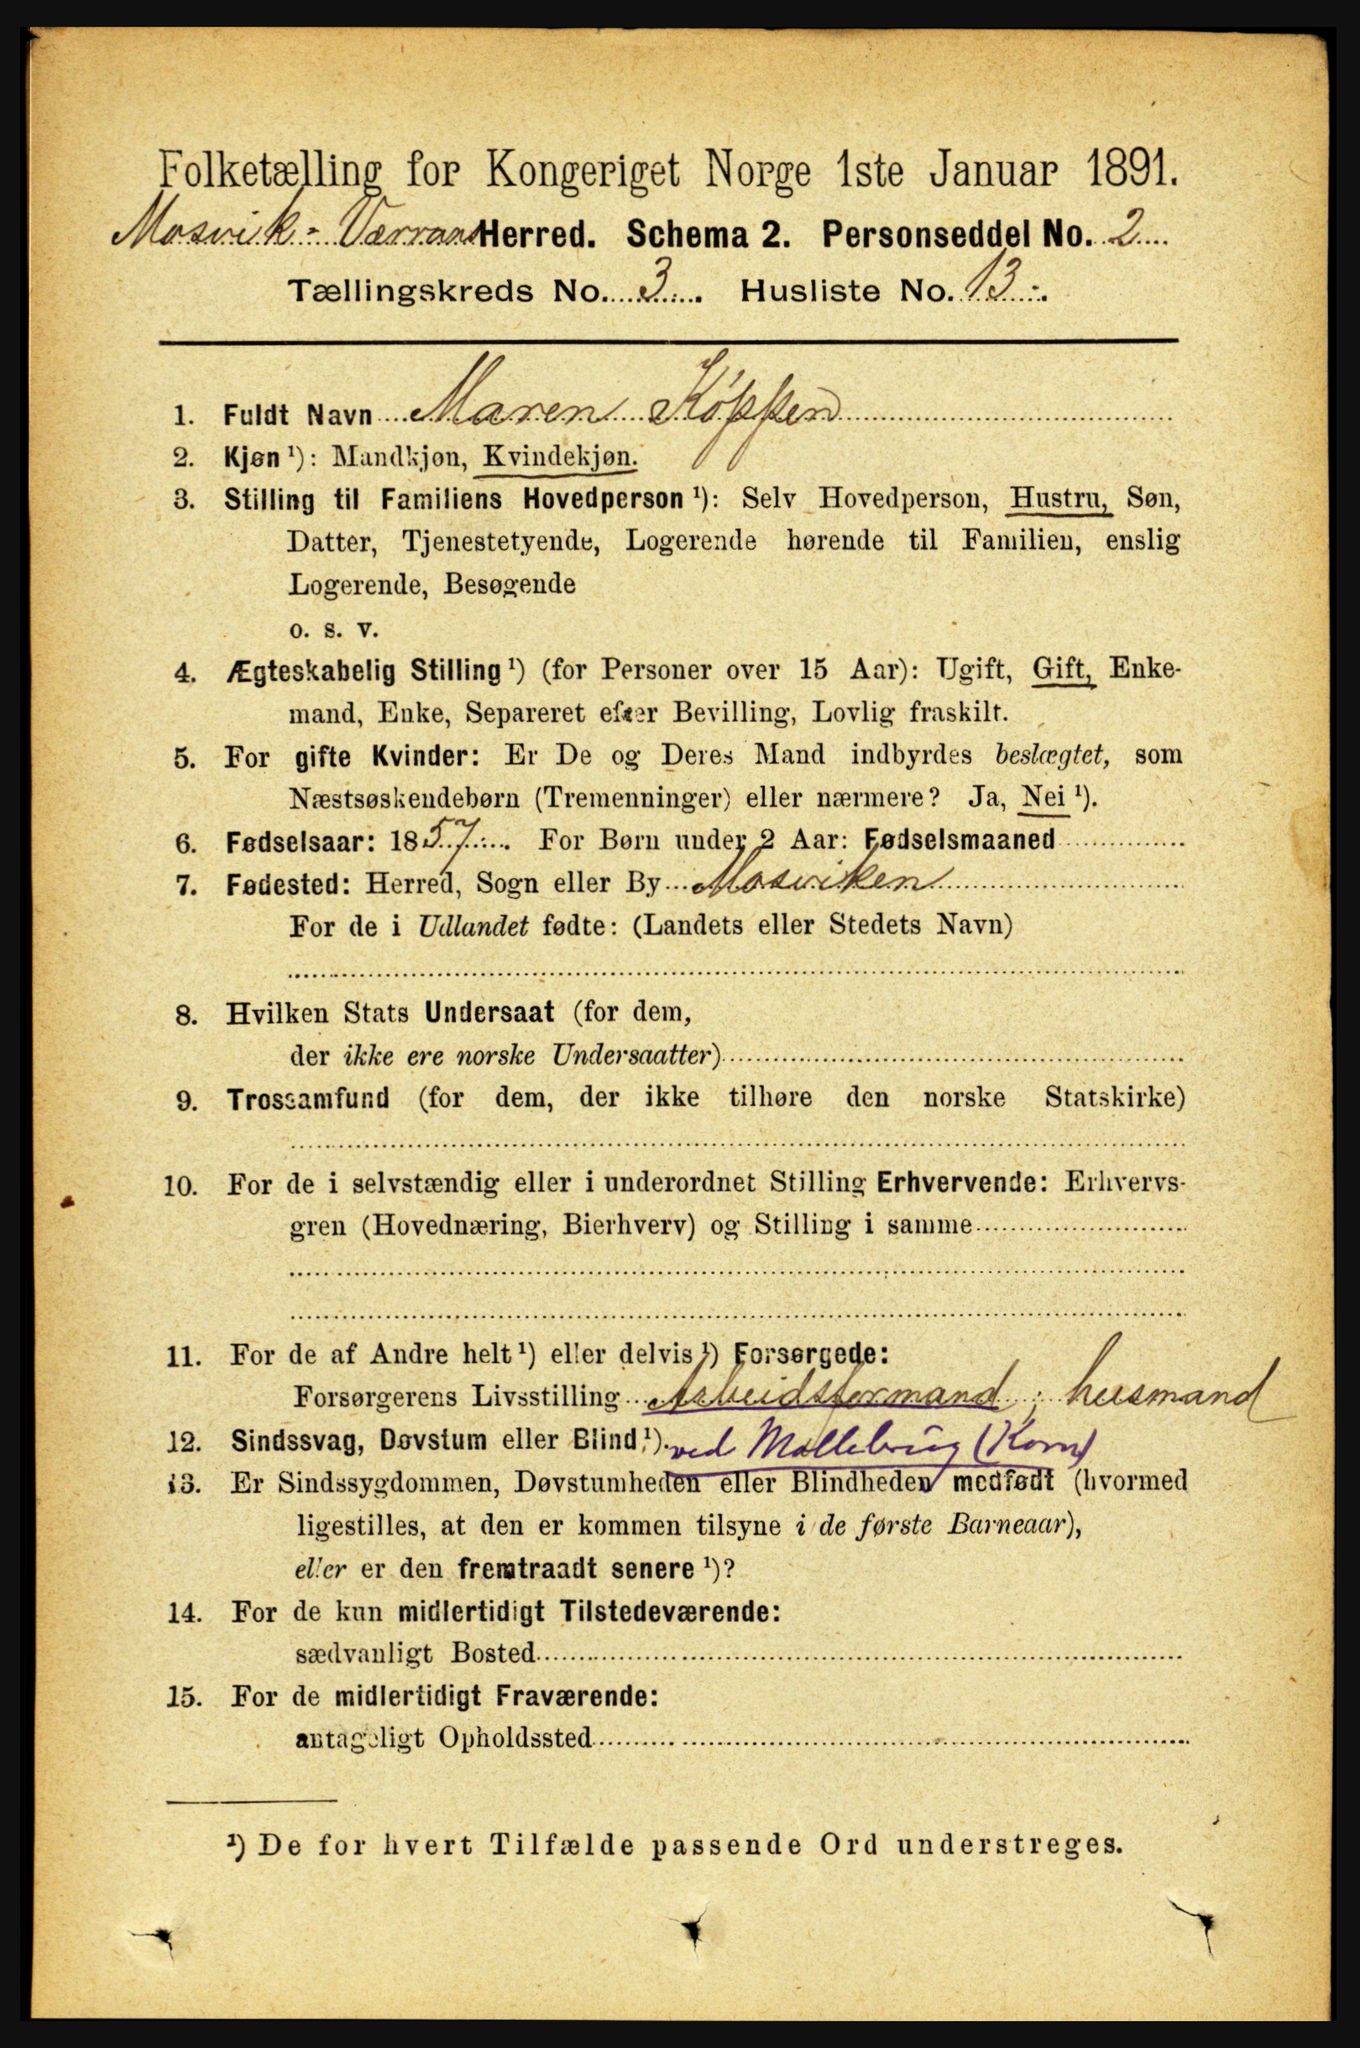 Folketælling for Kongeriget Norge 1ste Januar 1891.
Mosvik - Værran Herred. Schema 2. Personseddel No. 2
Tællingskreds No. 3. Husliste No. 13.
1. Fuldt Navn Maren Køppen
2. Kjøn ¹): Mandkjøn, Kvindekjøn.
3. Stilling til Familiens Hovedperson ¹): Selv Hovedperson, Hustru, Søn,
Datter, Tjenestetyende, Logerende hørende til Familien, enslig
Logerende, Besøgende
o. s. v.
4. Ægteskabelig Stilling ¹) (for Personer over 15 Aar): Ugift, Gift, Enke-
mand, Enke, Separeret efter Bevilling, Lovlig fraskilt.
5. For gifte Kvinder: Er De og Deres Mand indbyrdes beslægtet, som
Næstsøskendebørn (Tremenninger) eller nærmere? Ja, Nei ¹).
6. Fødselsaar: 1857. For Børn under 2 Aar: Fødselsmaaned
7. Fødested: Herred, Sogn eller By Mosviken
For de i Udlandet fødte: (Landets eller Stedets Navn)
8. Hvilken Stats Undersaat (for dem,
der ikke ere norske Undersaatter)
9. Trossamfund (for dem, der ikke tilhøre den norske Statskirke)
10. For de i selvstændig eller i underordnet Stilling Erhvervende: Erhvervs-
gren (Hovednæring, Bierhverv) og Stilling i samme
11. For de af Andre helt ¹) eller delvis ¹) Forsørgede:
Forsørgerens Livsstilling Arbeidsformand; husmand
12. Sindssvag, Døvstum eller Blind ¹). ved Møllebrug (Korn)
13. Er Sindssygdommen, Døvstumheden eller Blindheden medfødt (hvormed
ligestilles, at den er kommen tilsyne i de første Barneaar),
eller er den fremtraadt senere ¹)?
14. For de kun midlertidigt Tilstedeværende:
sædvanligt Bosted
15. For de midlertidigt Fraværende:
antageligt Opholdssted
¹) De for hvert Tilfælde passende Ord understreges.